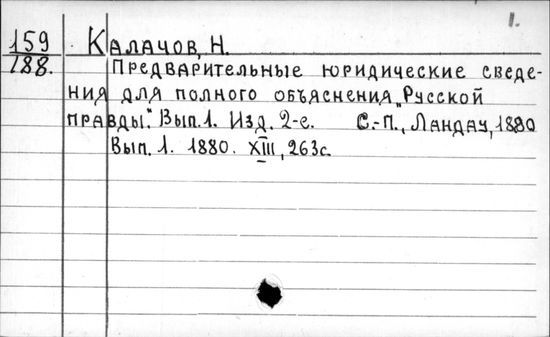 1.
159 Калачов, Н.
188. Предварительные юридические сведе-
ния для полного объяснения „Русской
правды". Вып. 1. Изд. 2-е. С.-П., Ландау, 1880
Вып. 1. 1880. XIII, 263с.